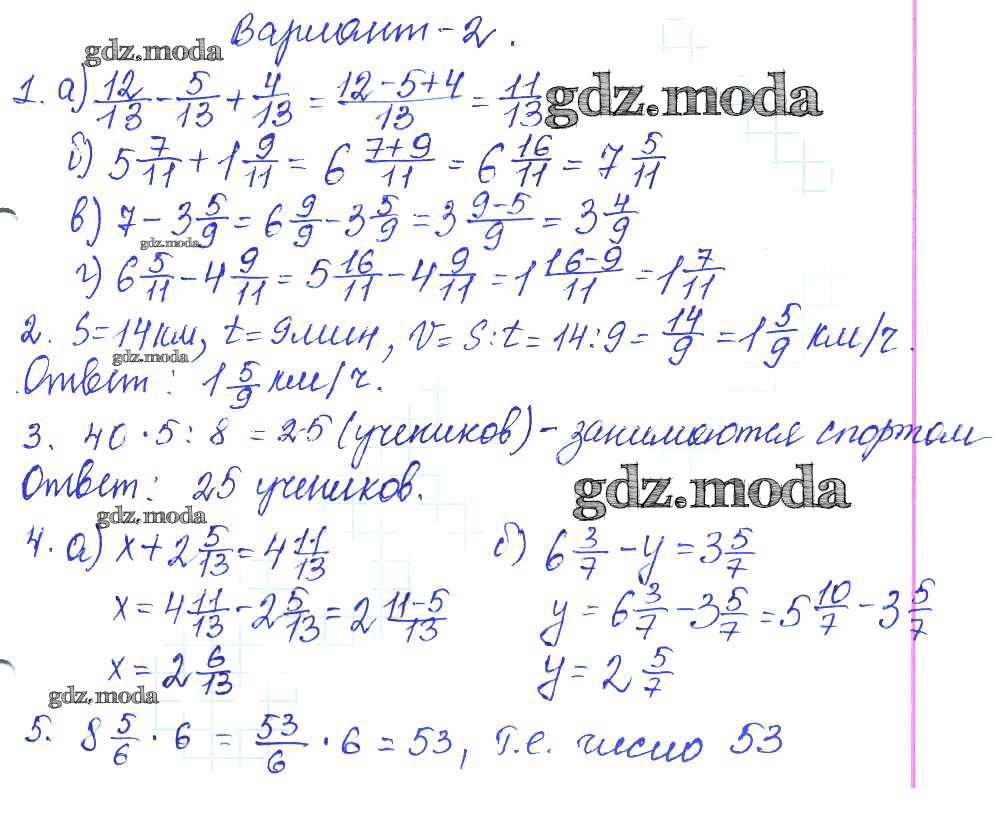 Вариант-2.
gdz.moda
1. а) 12/13 - 5/13 + 4/13 = (12-5+4)/13 = 11/13 gdz.moda
б) 5 7/11 + 1 9/11 = 6 (7+9)/11 = 6 16/11 = 7 5/11
в) 7 - 3 5/9 = 6 9/9 - 3 5/9 = 3 (9-5)/9 = 3 4/9
gdz.moda
г) 6 5/11 - 4 9/11 = 5 16/11 - 4 9/11 = 1 (16-9)/11 = 1 7/11
2. S=14км, t=9мин, V= S:t = 14:9= 14/9 = 1 5/9 км/ч.
gdz.moda
Ответ: 1 5/9 км/ч.
3. 40 · 5 : 8 = 25 (учеников) - занимаются спортом
Ответ: 25 учеников. gdz.moda
gdz.moda
4. а) x + 2 5/13 = 4 11/13 б) 6 3/7 - y = 3 5/7
x = 4 11/13 - 2 5/13 = 2 (11-5)/13 y = 6 3/7 - 3 5/7 = 5 10/7 - 3 5/7
x = 2 6/13 y = 2 5/7
gdz.moda
5. 8 5/6 · 6 = 53/6 · 6 = 53, т.е. число 53